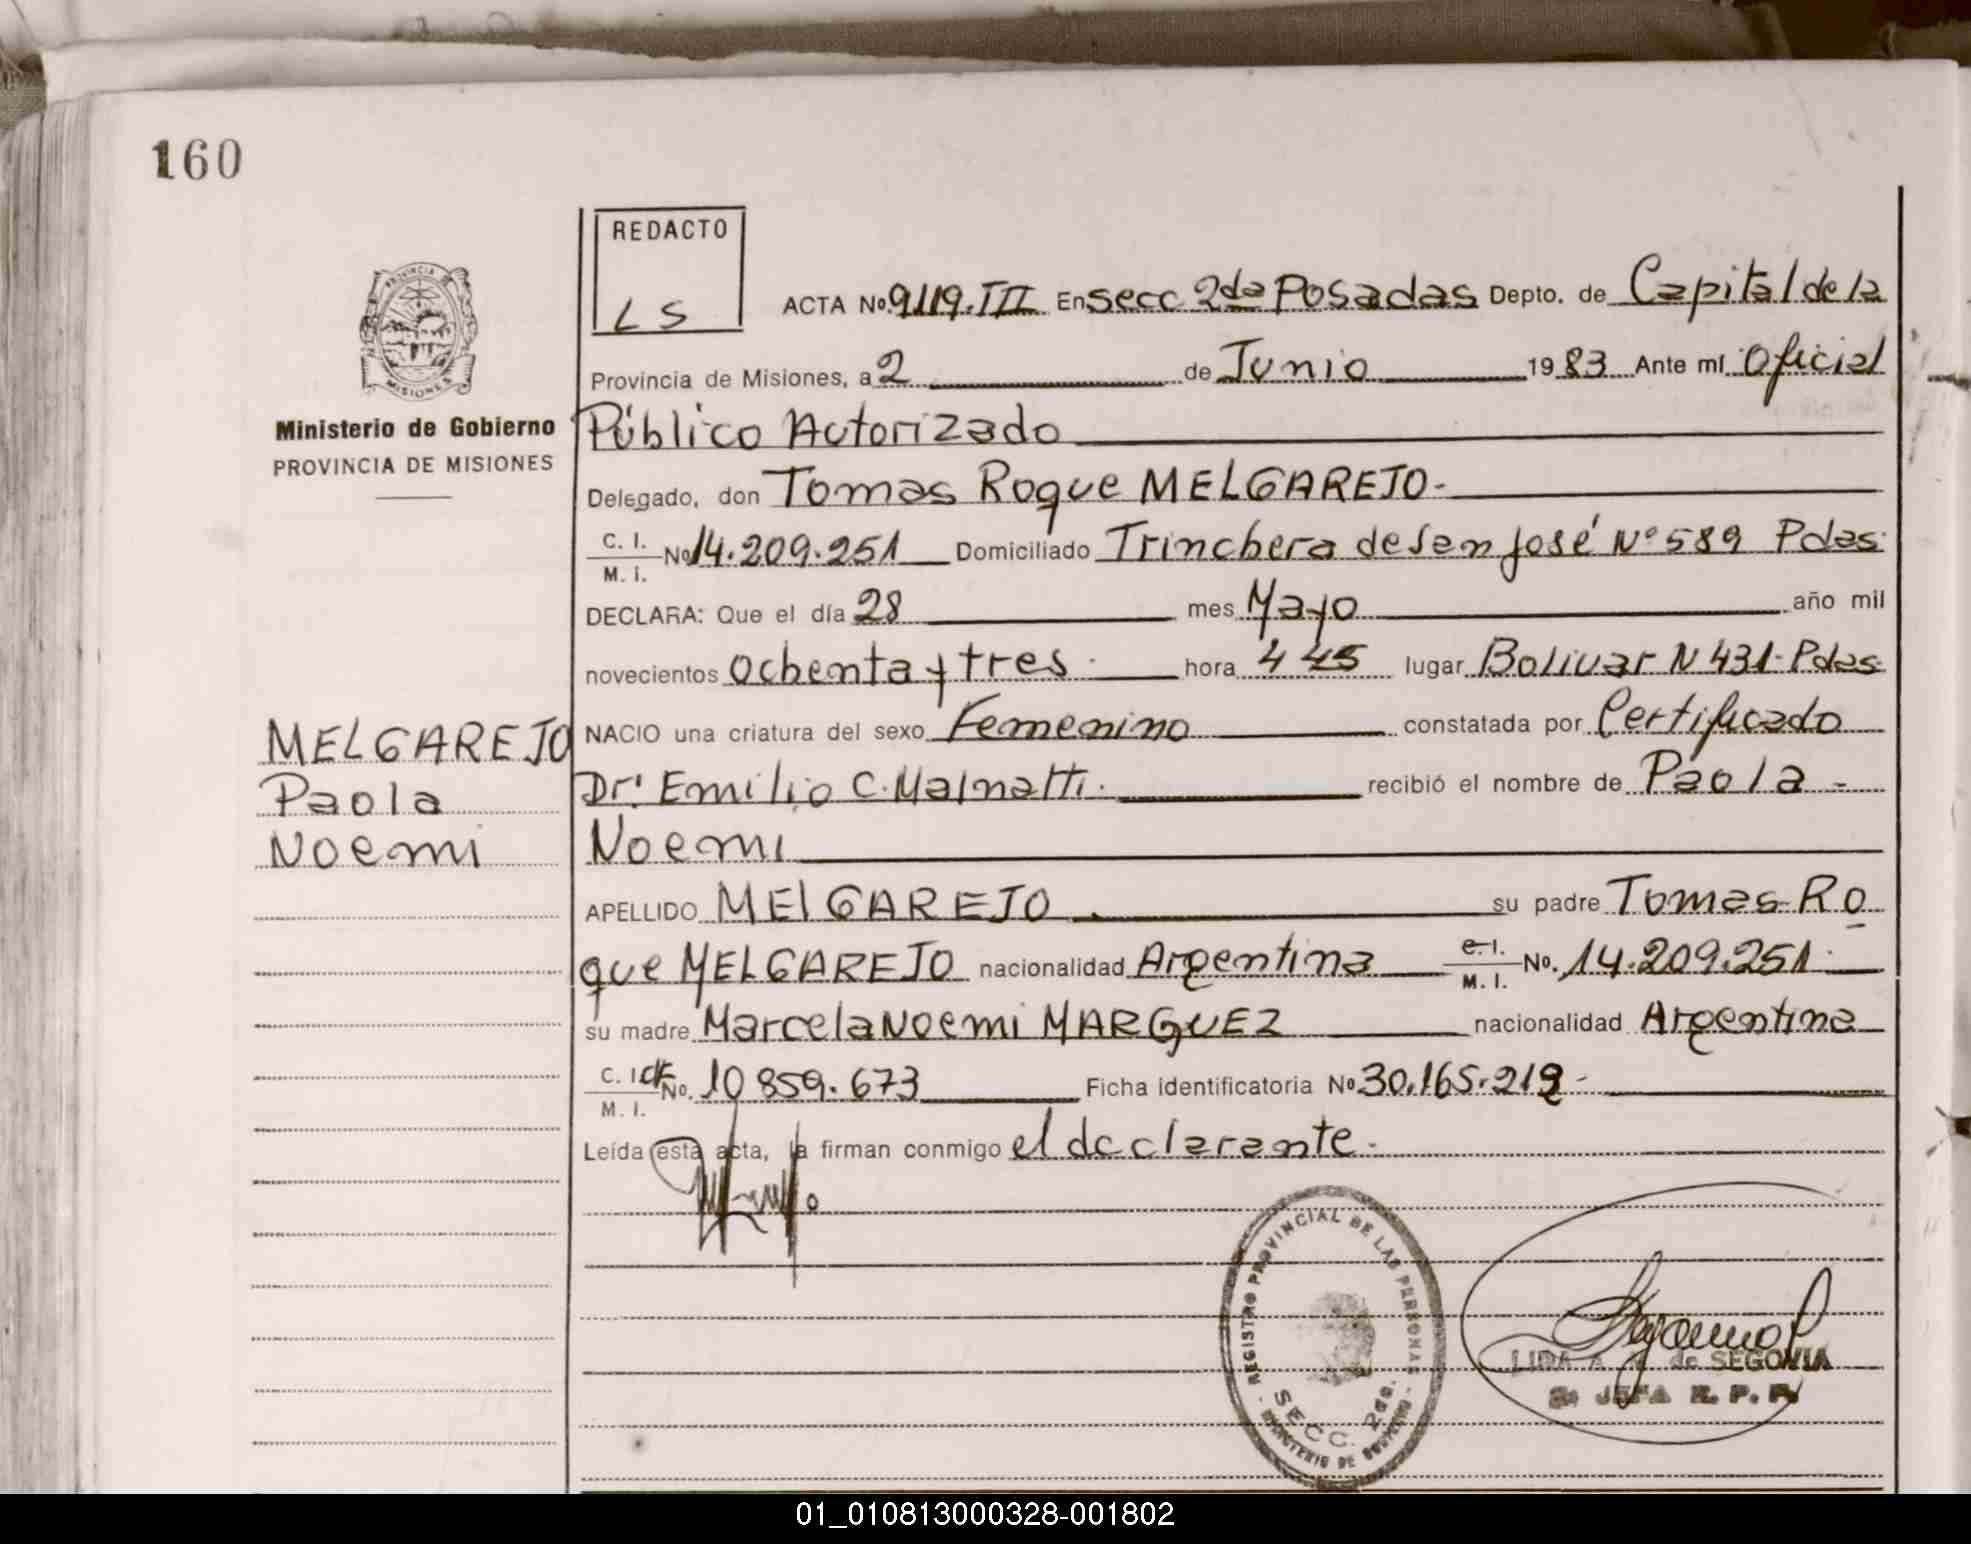 160
REDACTO
LS
PROVINCIA DE
MISIONES
Ministerio de Gobierno
PROVINCIA DE MISIONES
ACTA No. 9119.III En secc 2da Posadas Depto. de Capital de la
Provincia de Misiones, a 2 de Junio 1983 Ante mí Oficial
Público Autorizado
Delegado, don Tomas Roque MELGAREJO-
C. I. M. I. No 14.209.251 Domiciliado Trinchera de San José Nº 589 Pdas.
DECLARA: Que el día 28 mes Mayo año mil
novecientos ochenta y tres. hora 4 45 lugar Bolivar N 431. Pdas.
NACIO una criatura del sexo Femenino constatada por Certificado
Dr. Emilio C. Malnatti. recibió el nombre de Paola -
Noemi
APELLIDO MELGAREJO su padre Tomas Ro
que MELGAREJO nacionalidad Argentina C. I. M. I. No. 14.209.251.
su madre Marcela Noemi MARQUEZ nacionalidad Argentina
C. I. M. I. No. 10 859.673 Ficha identificatoria No 30.165.219-
Leída esta acta, la firman conmigo el declarante.
MELGAREJO
Paola
Noemi
REGISTRO PROVINCIAL DE LAS PERSONAS
SECC. 2da.
MINISTERIO DE GOBIERNO
LIDA A. de SEGOVIA
JEFA R. P. P.
01_010813000328-001802